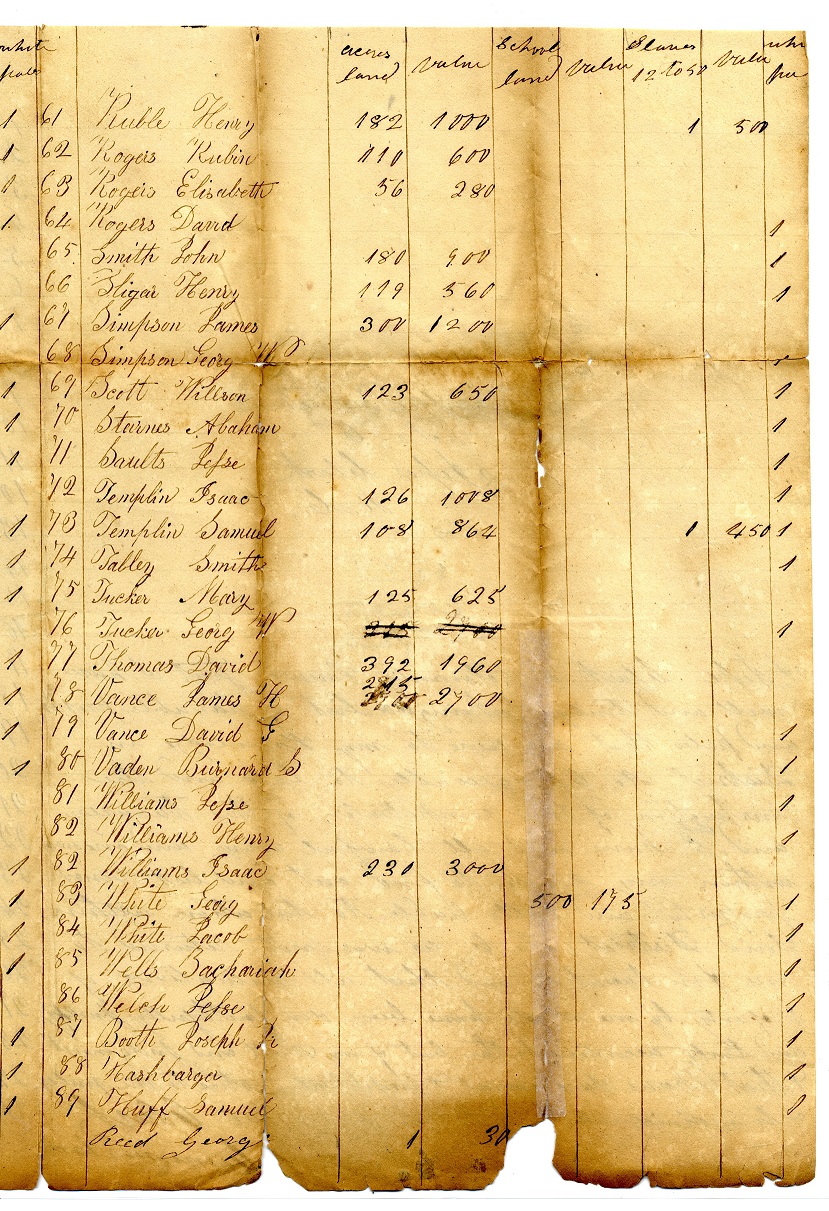 white acres School Slaves whi
pole land value land value 12 to 50 value po
1 61 Ruble Henry 182 1000 1 500
1 62 Rogers Rubin 110 600
1 63 Rogers Elisabeth 56 280
1 64 Rogers David 1
65 Smith John 180 900 1
66 Sligar Henry 119 560 1
1 67 Simpson James 300 1200
68 Simpson Georg W 1
1 69 Scott Willson 123 650 1
1 70 Starnes Abaham 1
1 71 Saults Jesse 1
72 Templin Isaac 126 1008 1
1 73 Templin Samuel 108 864 1 450 1
1 74 Tabley Smith 1
1 75 Tucker Mary 125 625
76 Tucker Georg W 215 2700 1
1 77 Thomas David 392 1960
2915
1 78 Vance James H 2700
1 79 Vance David G 1
1 80 Vaden Burnard S 1
81 Williams Jesse 1
82 Williams Henry 1
1 82 Williams Isaac 230 3000
1 83 White Georg 500 175 1
1 84 White Jacob 1
1 85 Wells Zachariah 1
86 Welch Jesse 1
1 87 Booth Joseph Jr 1
1 88 Hashbarger 1
1 89 Huff Samuel 1
Reed George 1 30